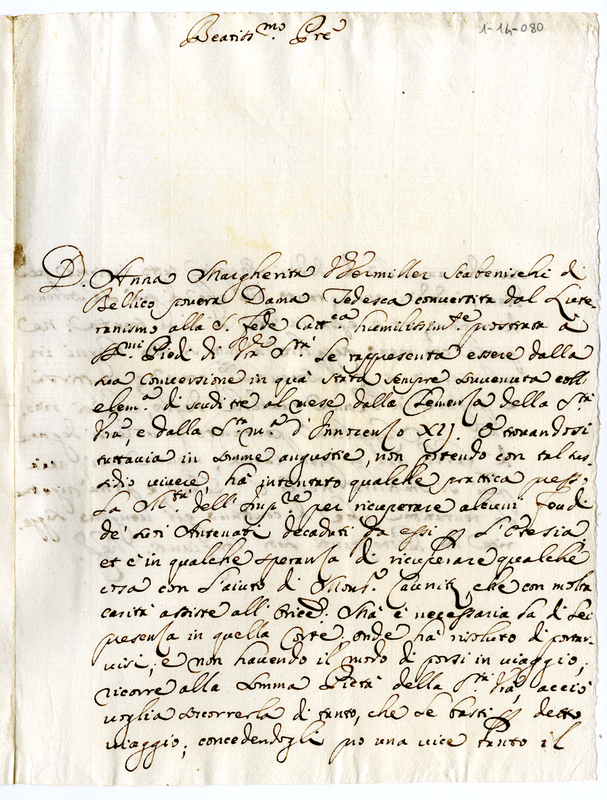 1-14-080
Beatiss.mo Pre
D. Anna Margherita Wermiller Scabenischi di
Bellico povera Dama Tedesca convertita dal Lute-
ranismo alla S. Fede Catt.ca humilissim.te prostrata a
SS.mi Piedi di V.ra S.tà Le rappresenta essere dalla
sua conversione in quà stata sempre sovenuta coll
elem.a di scudi tre al mese dalla Clemenza della S.tà
V.ra, e dalla S.ta m.a d'Innocenzo XII. E trovandosi
tuttavia in somme angustie, non potendo con tal sus-
sidio vivere, hà intentato qualche prattica presso
La M.tà dell'Imp.re per ricuperare alcuni feudi
de' suoi Antenati decaduti da essi p l'Eresia,
et è in qualche speranza di ricuperare qualche
cosa con l'aiuto di Mons.r Caunitz, che con molta
carità assiste all'Orice. Mà è necessaria la di Lei
presenza in quella Corte, onde hà risoluto di portar-
visi, e non havendo il modo di porsi in viaggio,
ricorre alla somma Pietà della S.tà V.ra, acciò
voglia soccorrerla di tanto, che Le basti p detto
viaggio; concedendogli p una vice tanto il